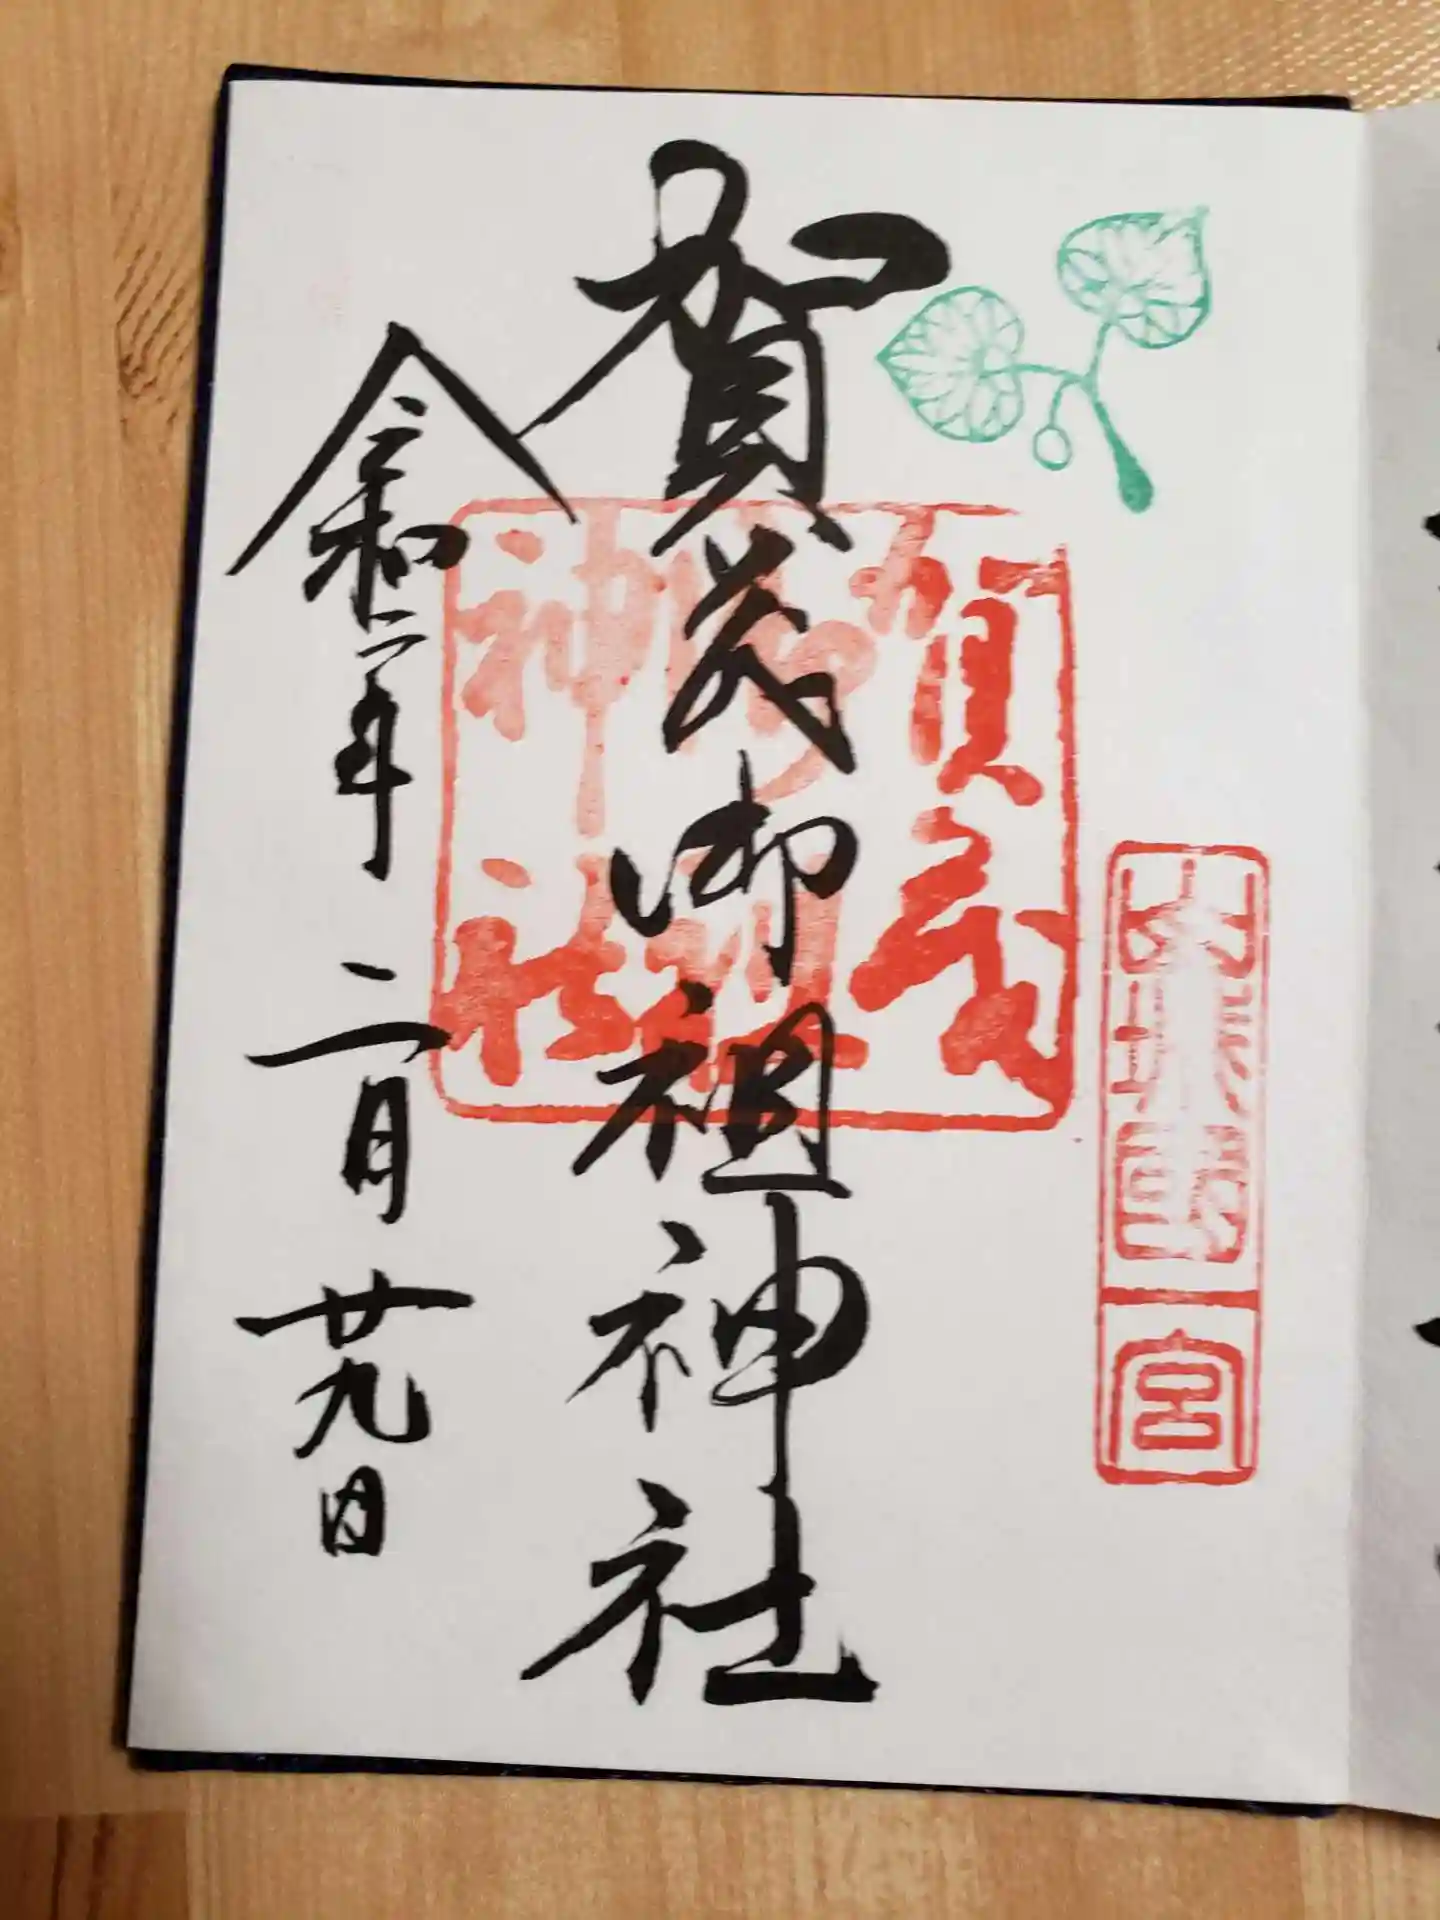 山城國一宮
賀茂御祖神社
賀茂
御祖
神社
令和二年二月廿九日